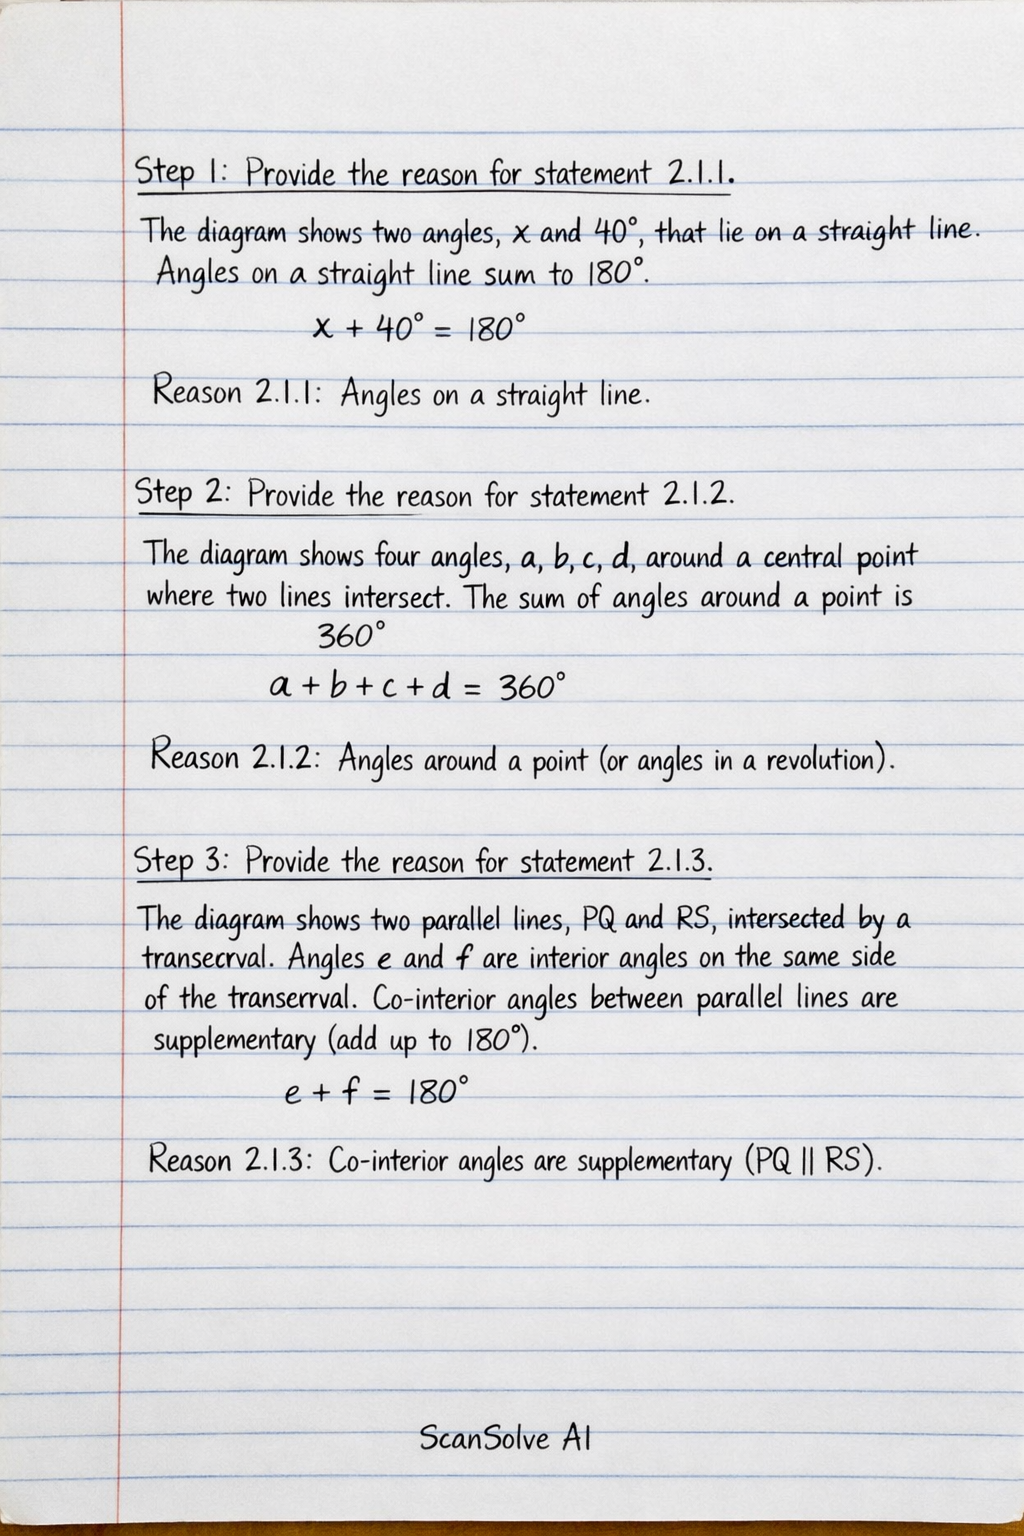 Step 1: Provide the reason for statement 2.1.1.
The diagram shows two angles, x and 40°, that lie on a straight line.
Angles on a straight line sum to 180°.
x + 40° = 180°
Reason 2.1.1: Angles on a straight line.
Step 2: Provide the reason for statement 2.1.2.
The diagram shows four angles, a, b, c, d, around a central point
where two lines intersect. The sum of angles around a point is
360°
a + b + c + d = 360°
Reason 2.1.2: Angles around a point (or angles in a revolution).
Step 3: Provide the reason for statement 2.1.3.
The diagram shows two parallel lines, PQ and RS, intersected by a
transecrval. Angles e and f are interior angles on the same side
of the transerrval. Co-interior angles between parallel lines are
supplementary (add up to 180°).
e + f = 180°
Reason 2.1.3: Co-interior angles are supplementary (PQ || RS).
ScanSolve AI